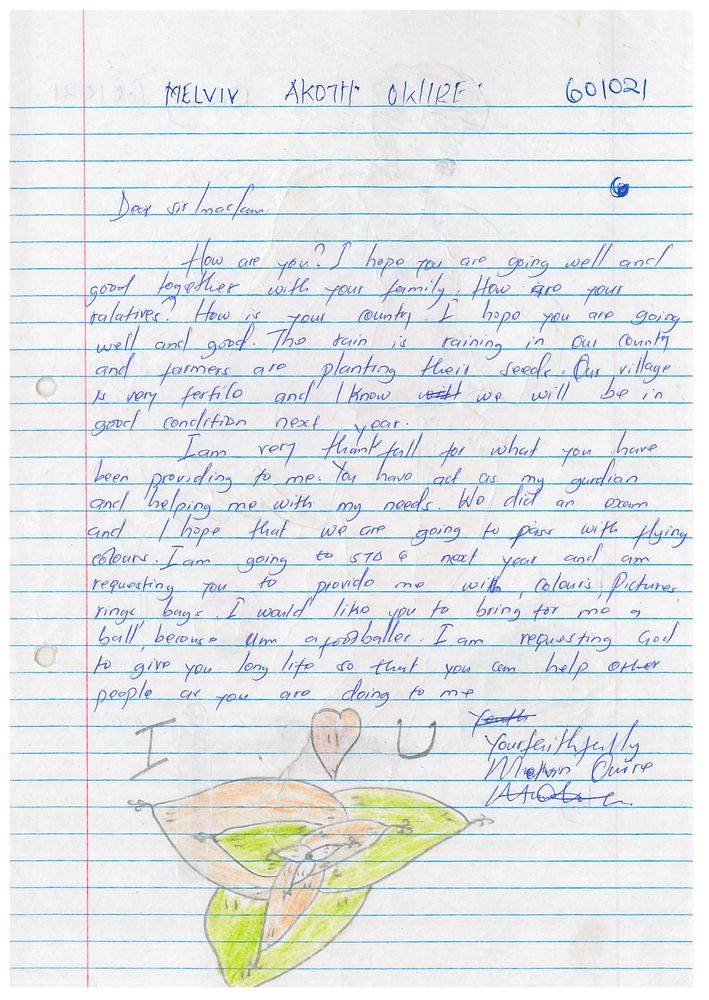 MELVIV AKOTH OWIRE 601021
Dear sir/madam
How are you? I hope you are going well and
good together with your family. How are your
ralatives? How is your country. I hope you are going
well and good. The rain is raining in our county
and farmers are planting their seeds. Our village
is very fertile and I know we will be in
good condition next year.
I am very thankfull for what you have
been providing to me. You have act as my gurdian
and helping me with my needs. We did an exam
and I hope that we are going to pass with flying
colours. I am going to STD 6 next year and am
requesting you to provide me with, colours, pictures,
rings, bags. I would like you to bring for me a
ball, because I am a footballer. I am requesting God
to give you long life so that you can help other
people as you are doing to me
I U
Yours faithfully
Owire